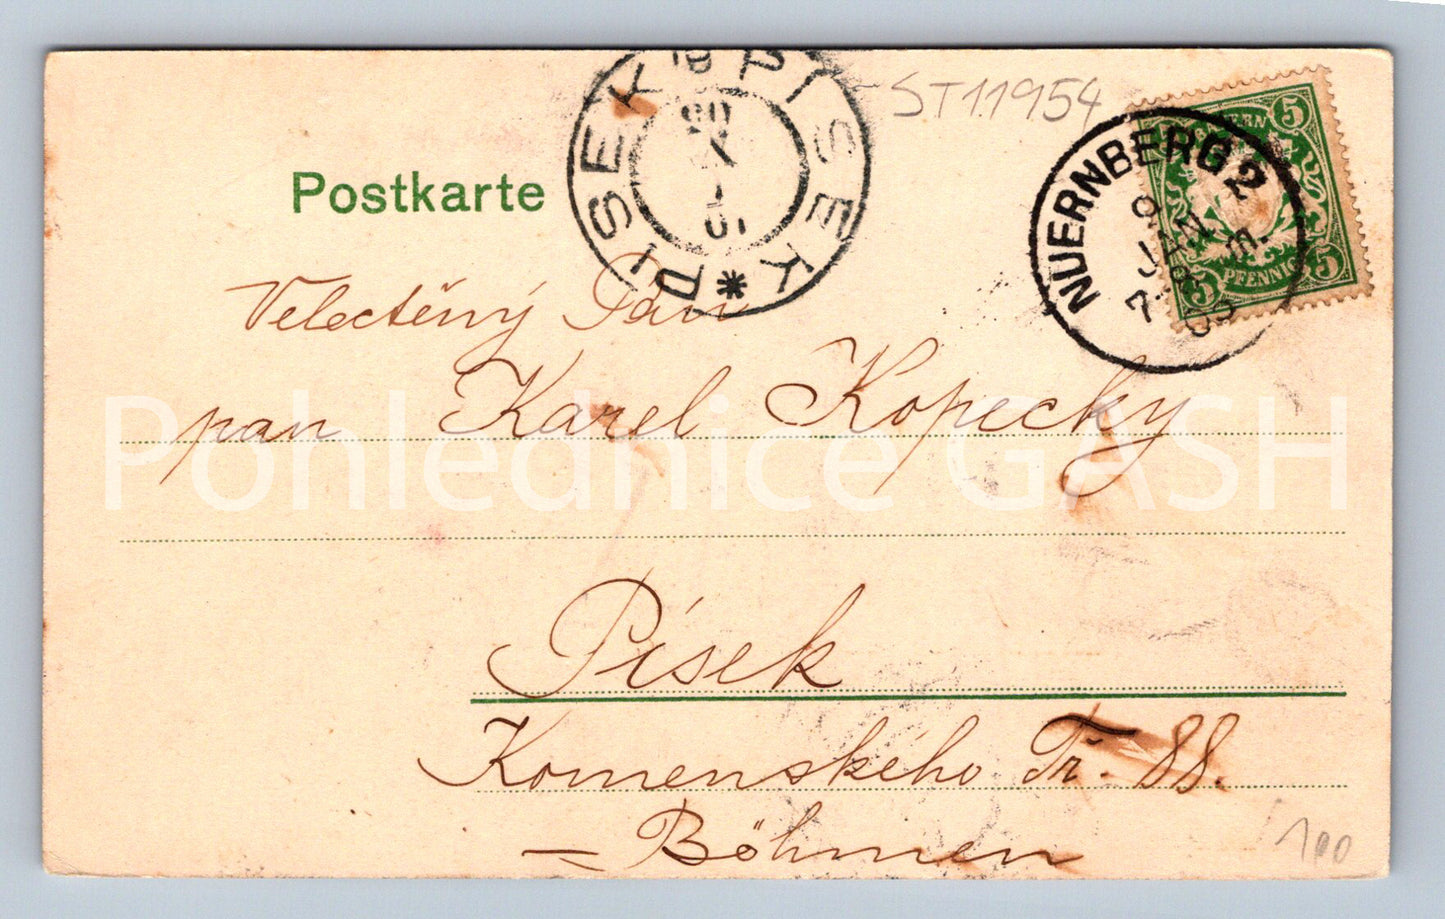 Postkarte
PISEK * PISEK
ST11954
BAYERN
5
PFENNIG
5 5
NUERNBERG 2
JAN
Velectěný Pán
pan Karel Kopecký
Pohlednice GASH
Písek
Komenského Tř. 88.
= Böhmen
100